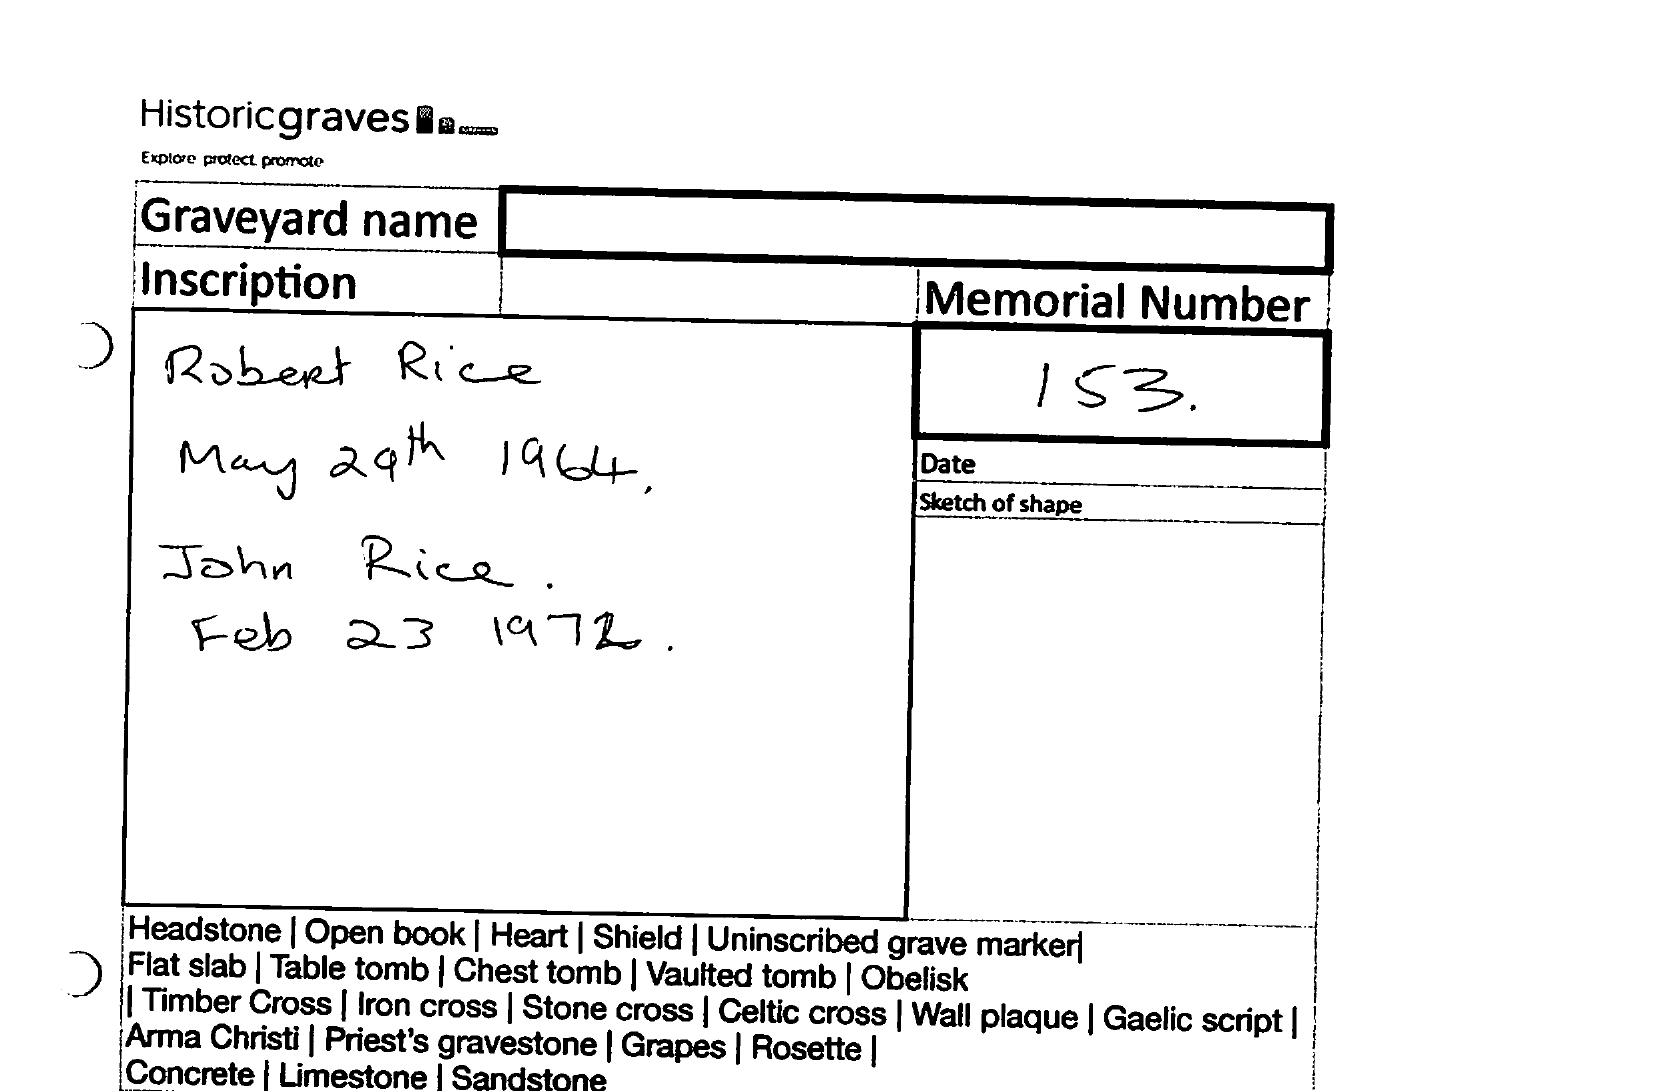 Historicgraves
Explore protect promote
Graveyard name
Inscription
Memorial Number
Robert Rice
May 29th 1964.
John Rice.
Feb 23 1972.
153.
Date
Sketch of shape
Headstone | Open book | Heart | Shield | Uninscribed grave marker|
Flat slab | Table tomb | Chest tomb | Vaulted tomb | Obelisk
| Timber Cross | Iron cross | Stone cross | Celtic cross | Wall plaque | Gaelic script |
Arma Christi | Priest's gravestone | Grapes | Rosette |
Concrete | Limestone | Sandstone